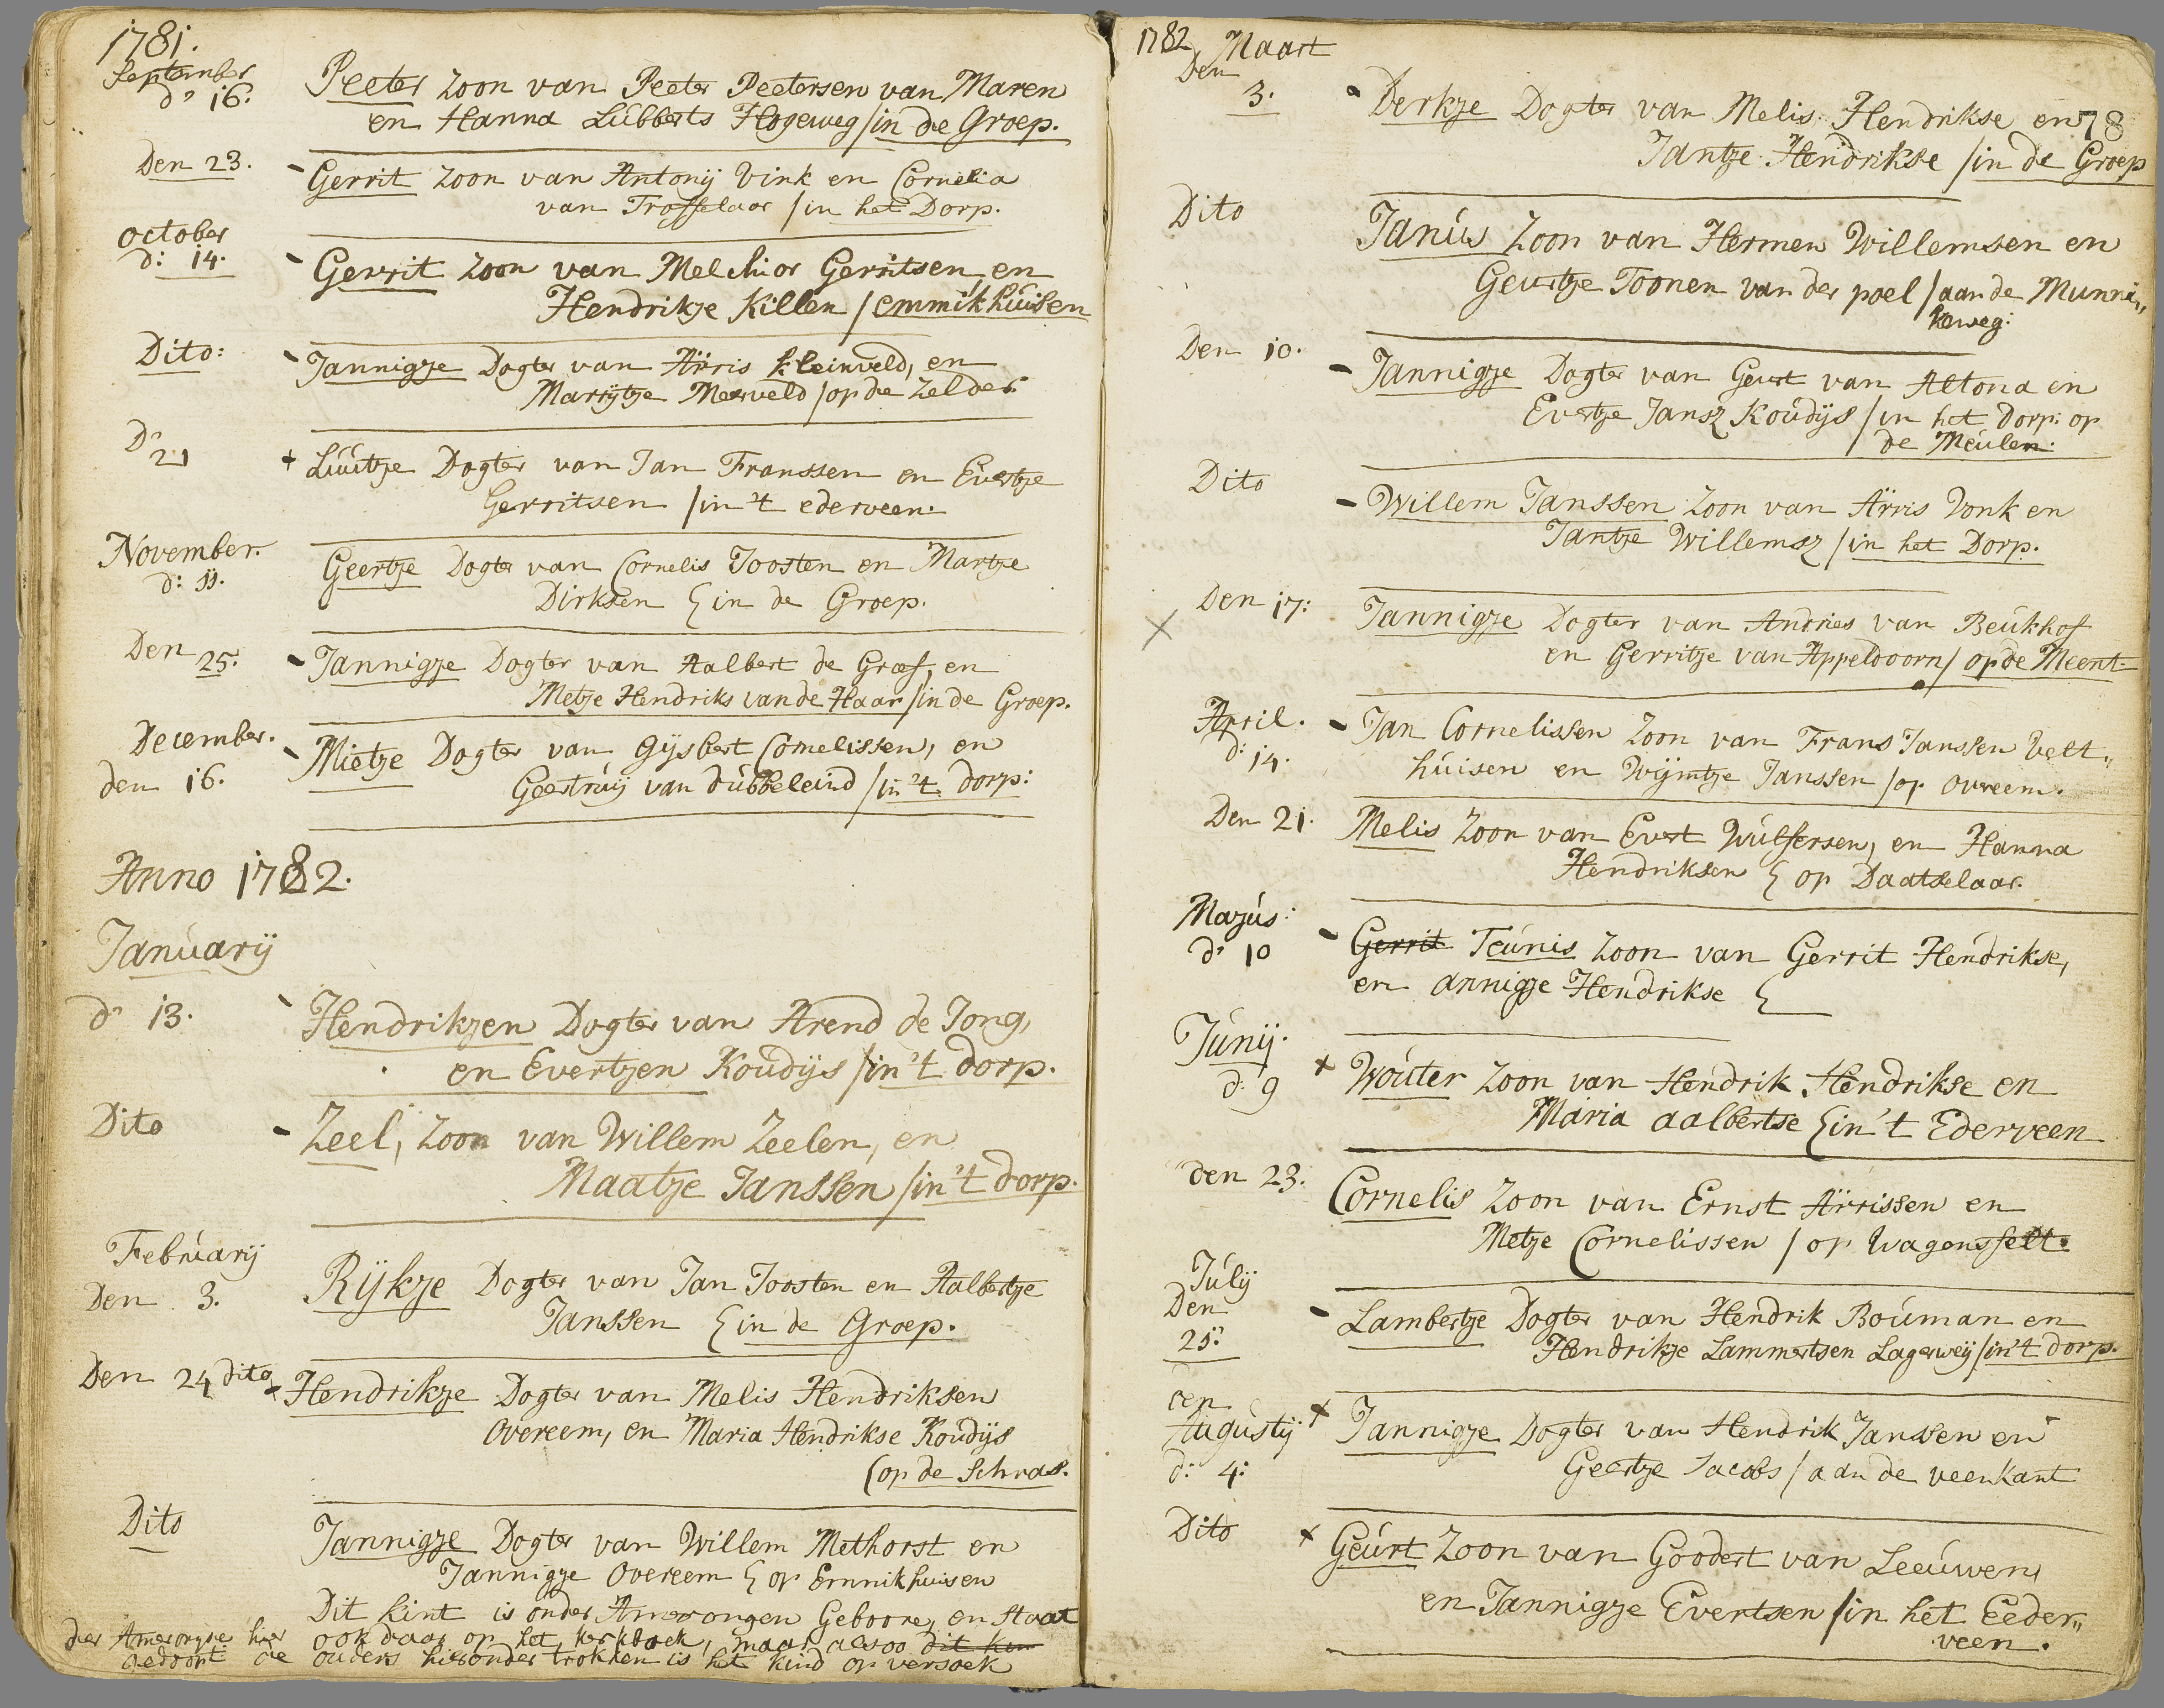 1781.
September
d° 16.
Peeter Zoon van Peeter Peetersen van Maren
en Hanna Lubberts Hogeweg / in de Groep.
Den 23.
Gerrit Zoon van Antonij Vink en Cornelia
van Trosselaar / in het Dorp.
October
d: 14.
Gerrit Zoon van Melchior Gerritsen en
Hendrikje Killen / emmikhuisen
Dito:
Jannigje Dogter van Arris kleinveld, en
Marrijtje Meerveld / op de Zelder
D° 21
+ Luutje Dogter van Jan Franssen en Evertje
Gerritsen / in 't ederveen.
November.
d: 11.
Geertje Dogter van Cornelis Joosten en Martje
Dirksen / in de Groep.
Den 25.
Jannigje Dogter van Aalbert de Graef, en
Metje Hendriks van de Haar / in de Groep.
December.
den 16.
Mietje Dogter van Gijsbert Cornelissen, en
Geertruij van dubbeleind / in 't dorp:
Anno 1782.
Januarij
d° 13.
Hendrikjen Dogter van Arend de Jong,
en Evertjen Koudijs / in 't dorp.
Dito
Zeel, Zoon van Willem Zeelen, en
Maatje Janssen / in 't dorp.
Februarij
Den 3.
Rijkje Dogter van Jan Joosten en Aalbertje
Janssen / in de Groep.
Den 24 dito
Hendrikje Dogter van Melis Hendriksen
Overeem, en Maria Hendrikse Koudijs
(op de Schras.
Dito
Jannigje Dogter van Willem Methorst en
Jannigje Overeem / op Emnikhuisen
Dit kint is onder Amerongen Geboore, en staat
ook daar op het kerkboek, maar alsoo dit kin
ouders hieronder trokken is het kind op versoek
der Amerongse hier
gedoopt die
1782 Maart
Den
3.
Derkje Dogter van Melis Hendrikse en 78
Jantje Hendrikse / in de Groep
Dito
Janus Zoon van Hermen Willemsen en
Geurtje Toonen van der poel / aan de Munni„
keweg.
Den 10.
Jannigje Dogter van Geurt van Altona en
Evertje Jansz Koudijs / in het Dorp: op
de Meulen.
Dito
Willem Janssen Zoon van Arris Vonk en
Jantje Willemsz / in het Dorp.
Den 17:
Jannigje Dogter van Andries van Beukhof
en Gerritje van Appeldoorn / op de Meent.
April.
d: 14.
Jan Cornelissen Zoon van Frans Janssen Velt„
huisen en Wijmtje Janssen / op Overeem.
Den 21.
Melis Zoon van Evert Wulfersen, en Hanna
Hendriksen / op Daatselaar.
Majus:
d° 10
Gerrit Teunis Zoon van Gerrit Hendrikse,
en annigje Hendrikse
Junij.
d: 9
+ Wouter Zoon van Hendrik Hendrikse en
Maria aalbertse / in 't Ederveen
den 23.
Cornelis Zoon van Ernst Arrissen en
Metje Cornelissen / op Wagensfelt.
Julij
Den
21:
Lambertje Dogter van Hendrik Bouman en
Hendrikje Lammertsen Lagerweij / in 't dorp.
den
Augustij
d: 4:
+ Jannigje Dogter van Hendrik Janssen en
Geertje Jacobs / aan de veenkant
Dito
+ Geurt Zoon van Goodert van Leeuwen,
en Jannigje Evertsen / in het Eeder„
veen.